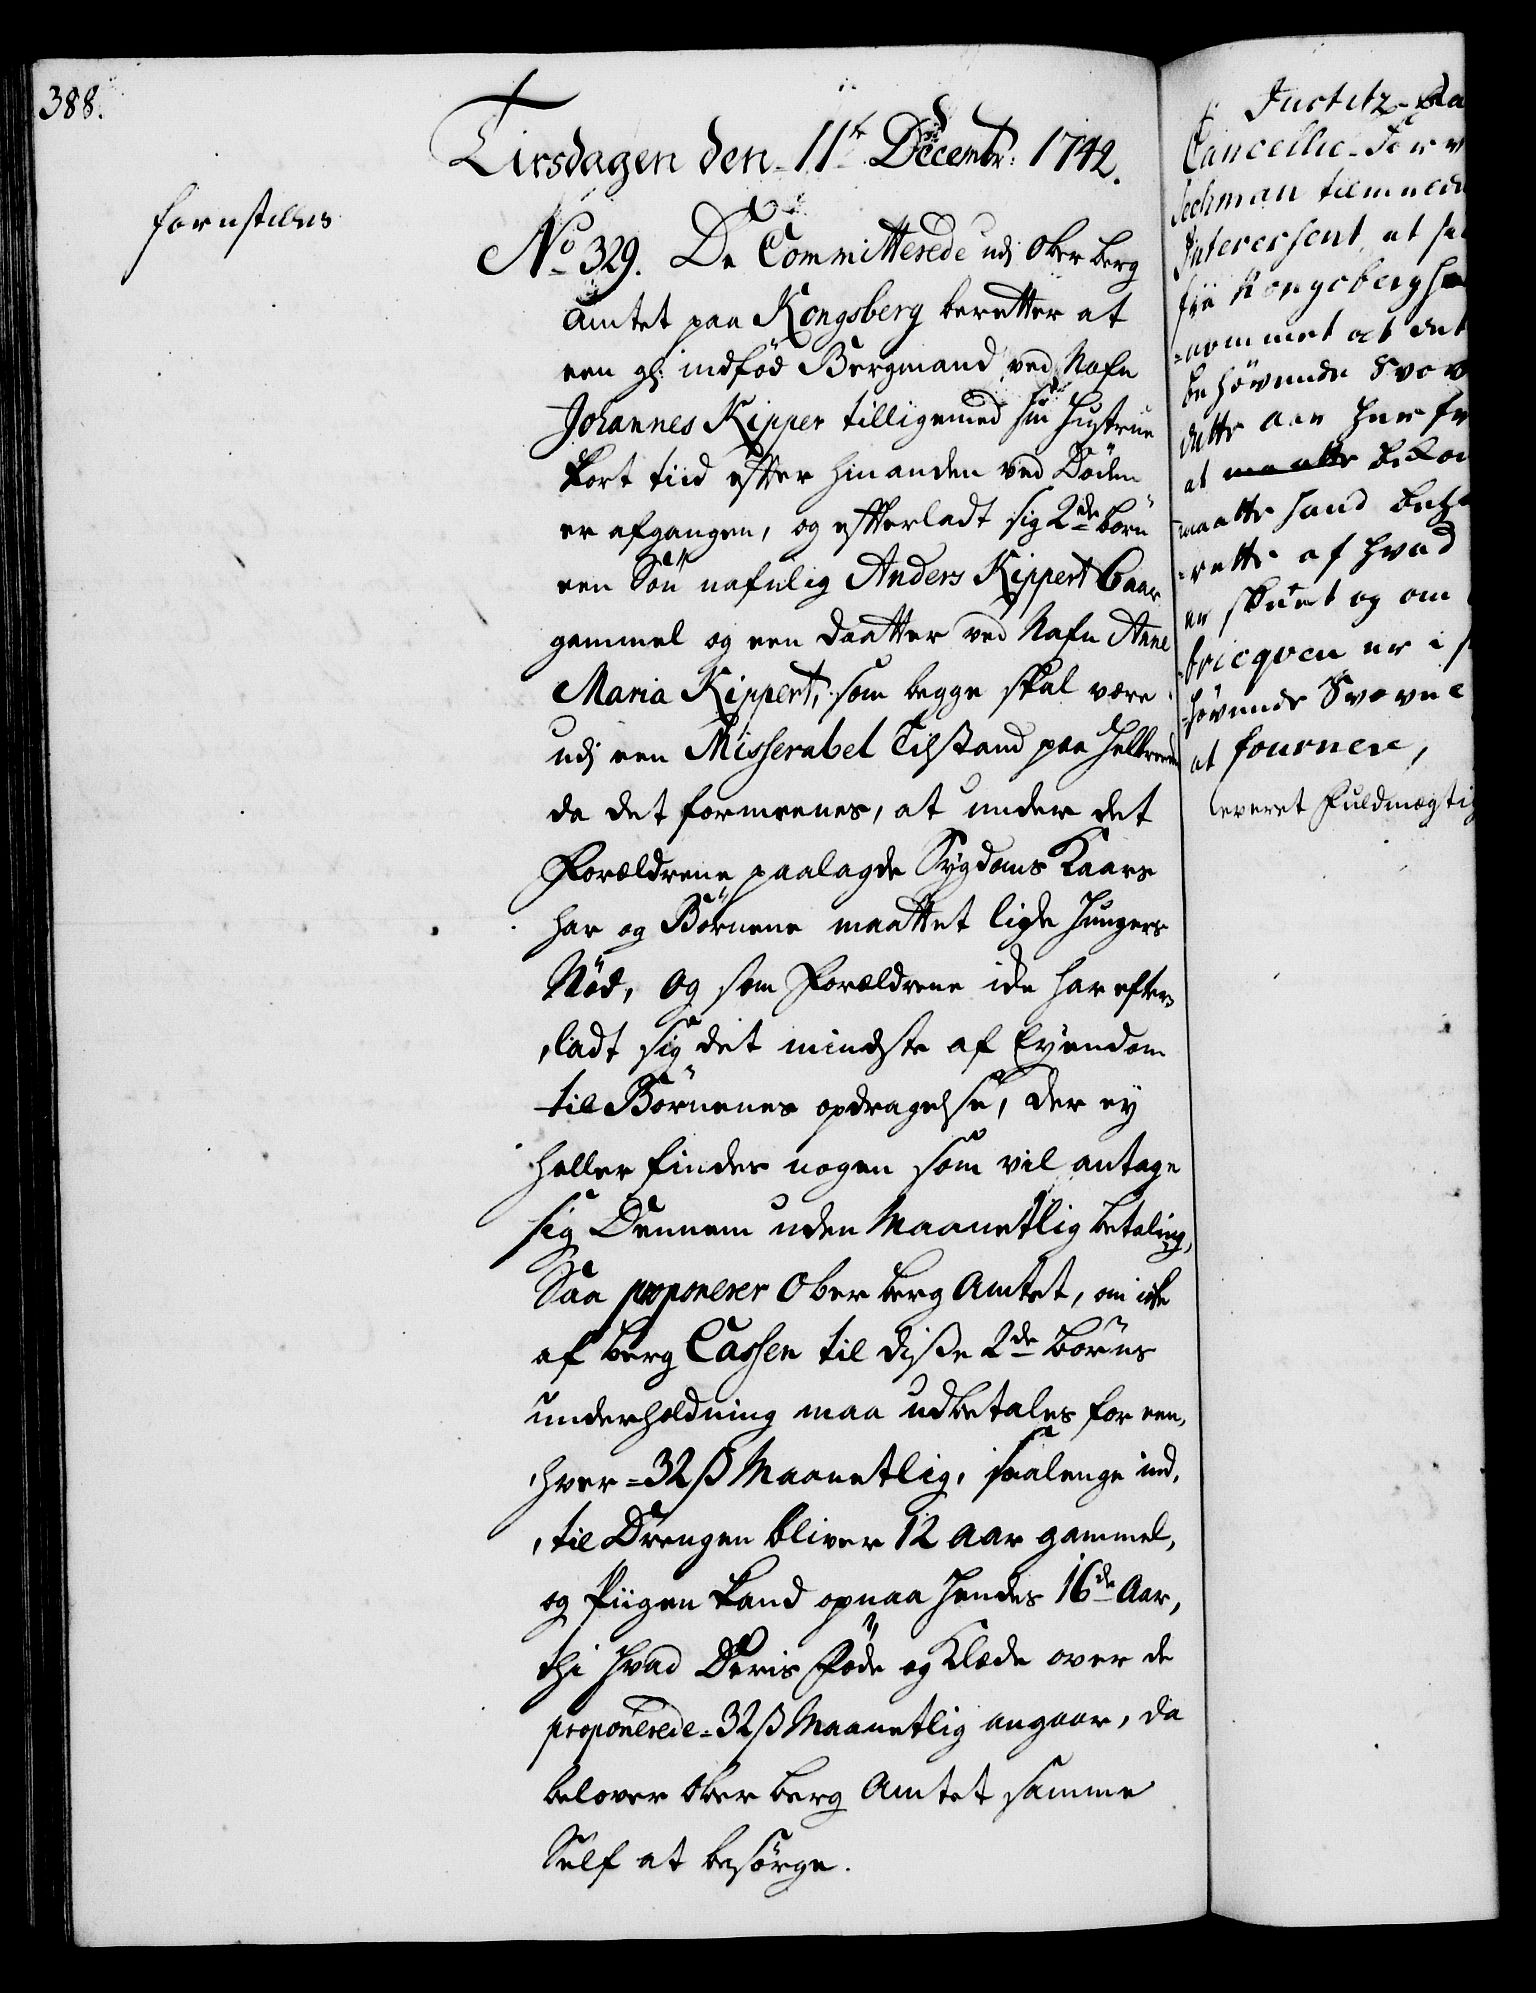 388.
Tirsdagen den 11te Decembr: 1742.
forestilles
No 329. De Committerede udj Ober berg
Amtet paa Kongsberg beretter at
een gl: indfød Bergmand ved Nafn
Johannes Kipper tilligemed sin Hustrue
kort tiid efter hinanden ved Døden
er afgangen, og efterladt sig 2de børn
een Søn nafnlig Anders Kippert 6 aar
gammel og een Daatter ved Nafn Anne
Maria Kippert, som begge skal være
udj een Misserabel Tilstand paa
da det formeenes, at under det
Forældrene paalagde Sygdoms Kaars
har og Børnene maattet lide Hungers
Nød, og som Forældrene icke har efter,,
,,ladt sig det mindste af Eyendom
til Børnenes opdragelse, der ey
heller findes nogen som vil antage
sig Dennem uden Maanetlig betaling,
Saa proponerer Ober berg Amtet, om icke
af berg Cassen til disse 2de børns
underholdning maa udbetales for een,
,hver = 32 ß Maanetlig, saalenge ind,
,til Drengen bliver 12 aar gammel,
og Piigen kand opnaa Hendes 16de Aar,
thi hvad Deris Føde og Klæde over de
proponerede = 32 ß Maanetlig angaar, da
belover Ober berg Amtet samme
Self at besørge.
Justitz-
Cancellie-
tilmelde
Interessent, at
fra Kongsberg
=nommet at det
behøvende
dette aar her
at maatte
maatte hand
=rette af hvad
er skeet og om
er i
=høvende Svovel
at fournere,
leveret Fuldmægtig